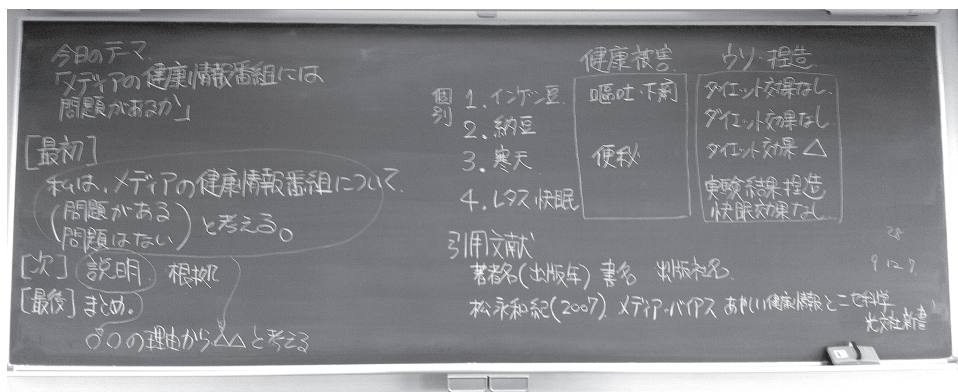 今日のテーマ
「メディアの健康情報番組には
問題があるか」
[最初]
私は、メディアの健康情報番組について
(問題がある
問題はない) と考える。
[次] 説明 根拠
[最後] まとめ。
○○の理由から△△と考える
健康被害 ウソ・捏造
個別
1. インゲン豆 嘔吐・下痢 ダイエット効果なし
2. 納豆 ダイエット効果なし
3. 寒天 便秘 ダイエット効果 △
4. レタス快眠 実験結果捏造
快眠効果なし
引用文献
著者名(出版年) 書名 出版社名
松永和紀(2007) メディア・バイアス あやしい健康情報とニセ科学
光文社新書
28
9 12 7